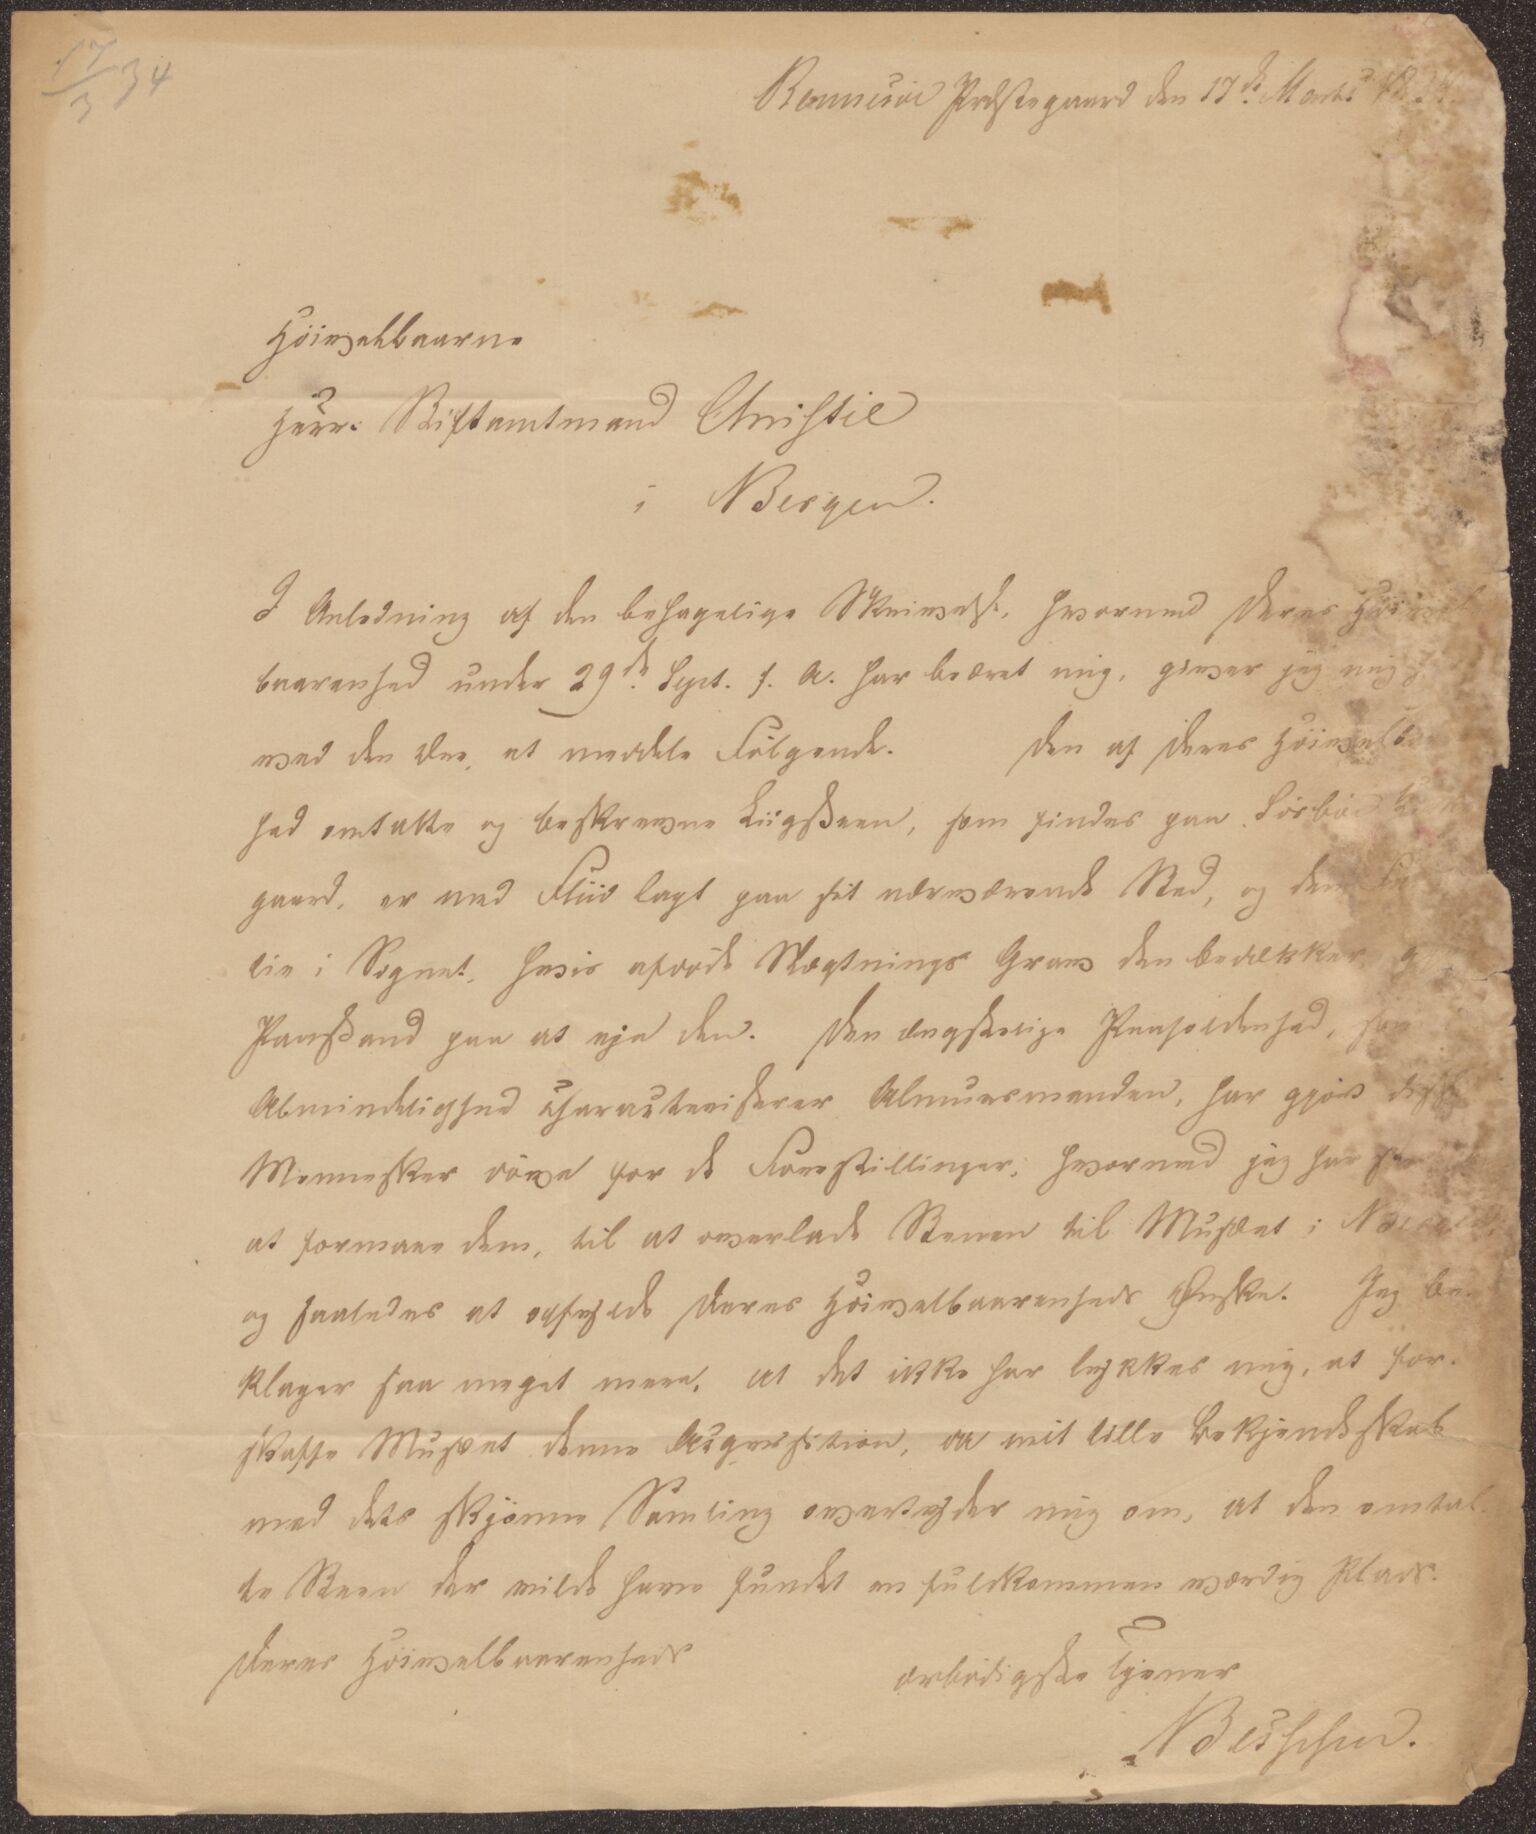 17/3 34
Rennesöe Præstegaard den 17de Marts 1834
Höivelbaarne
Herr. Stiftamtmand Christie
i Bergen.
I Anledning af den behagelige Skrivelse, hvormed Deres Höivel
baarenhed under 29de Sept. f. A. har beæret mig, giver jeg mig
ved den Ære, at meddele Fölgende. Den af Deres Höivelb
hed omtalte og beskrevne Liigsteen, som findes paa Sörböe
gaard, er med Fliid lagt paa sit nærværende Sted, og den Fa
lie i Sognet, hvis afdöde Slægtnings Grav den bedækker, gjör
Paastand paa at eje den. Den ængstelige Paaholdenhed, som
Almindelighed charakteriserer Almuesmanden, har gjort disse
Mennesker döve for de Forestillinger, hvormed jeg har
at formaae dem, til at overlade Stenen til Musæet i Bergen,
og saaledes at opfylde Deres Höivelbaarenheds Ønske. Jeg be-
klager saa meget mere, at det ikke har lykkes mig, at for-
skaffe Musæet denne Acqvisition, da mit lille Bekjendtskab
med dets skjönne Samling overtyder mig om, at den omtal-
te Steen der vilde have fundet en fuldkommen værdig Plads.
Deres Höivelbaarenheds
ærbödigste Tjener